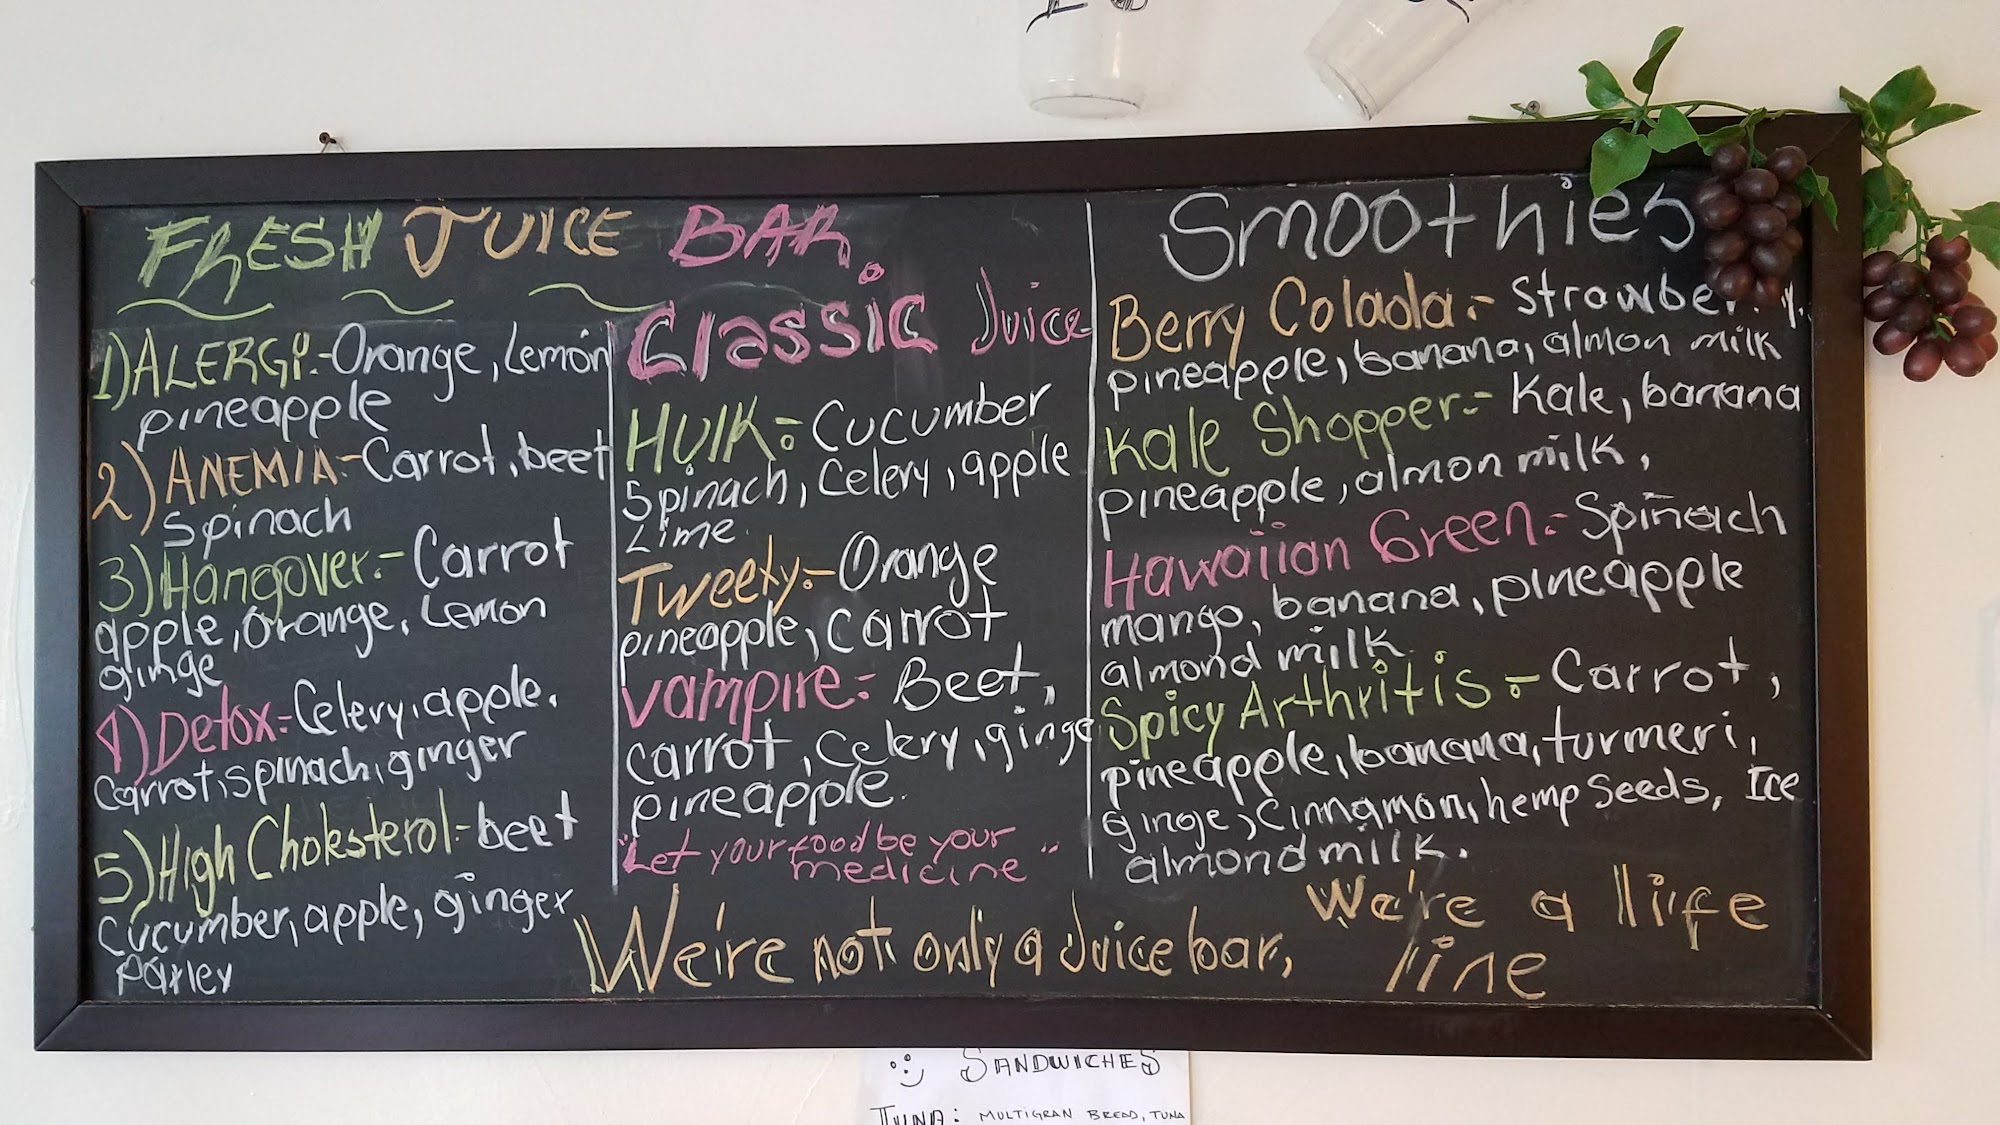 FRESH JUICE BAR.
1) ALERGi:- Orange, Lemon
pineapple
2) ANEMIA:- Carrot, beet
Spinach
3) Hangover:- Carrot
apple, orange, Lemon
ginge
4) Detox:- Celery, apple,
Carrot, spinach, ginger
5) High Choksterol:- beet
Cucumber, apple, ginger
Parley
Classic Juice
HUlK:- Cucumber
Spinach, Celery, apple
Lime.
Tweety:- Orange
pineapple, Carrot
vampire:- Beet,
carrot, Celery, ginge
pineapple.
"Let your food be your
medicine"
Smoothies
Berry Colada:-
pineapple, banana, almon milk
Kale Shopper:- Kale, banana
pineapple, almon milk,
Hawaiian Green:- Spinach
mango, banana, pineapple
almond milk
Spicy Arthritis:- Carrot,
pineapple, banana, turmeri,
ginge, Cinnamon, hemp seeds, Ice
almond milk.
We're not only a Juice bar,
We're a life
line
SANDWICHES
TUNA: MULTIGRAN BREAD, TUNA